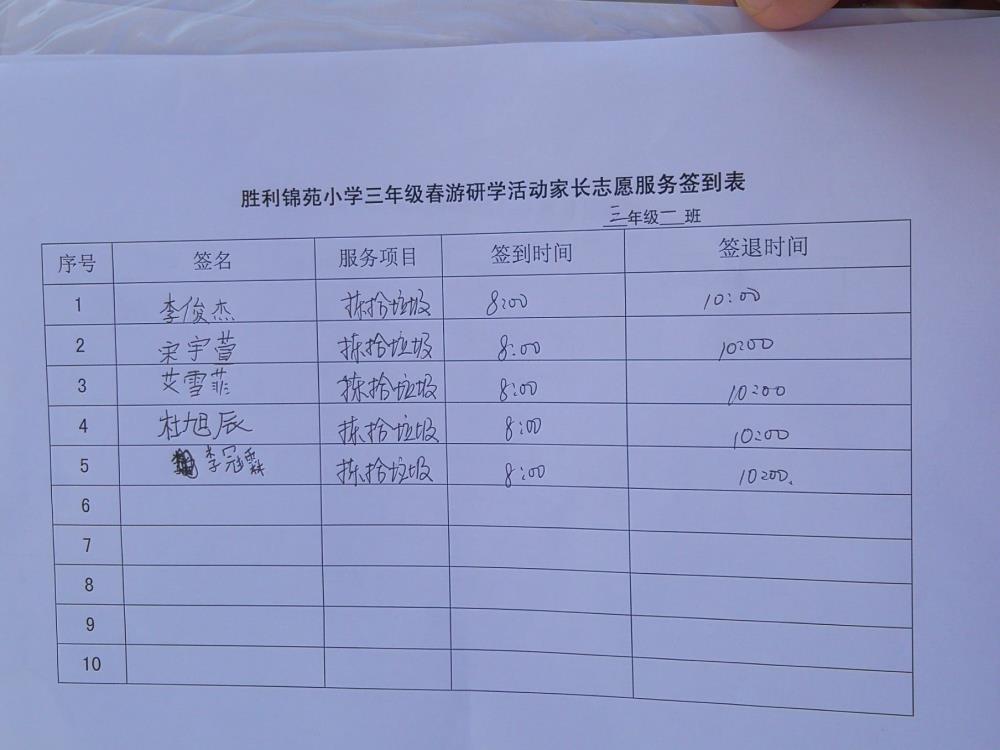 胜利锦苑小学三年级春游研学活动家长志愿服务签到表
三年级一班
序号 签名 服务项目 签到时间 签退时间
1 李俊杰 拣拾垃圾 8:00 10:00
2 宋宇萱 拣拾垃圾 8:00 10:00
3 艾雪菲 拣拾垃圾 8:00 10:00
4 杜旭辰 拣拾垃圾 8:00 10:00
5 李冠霖 拣拾垃圾 8:00 10:00.
6
7
8
9
10